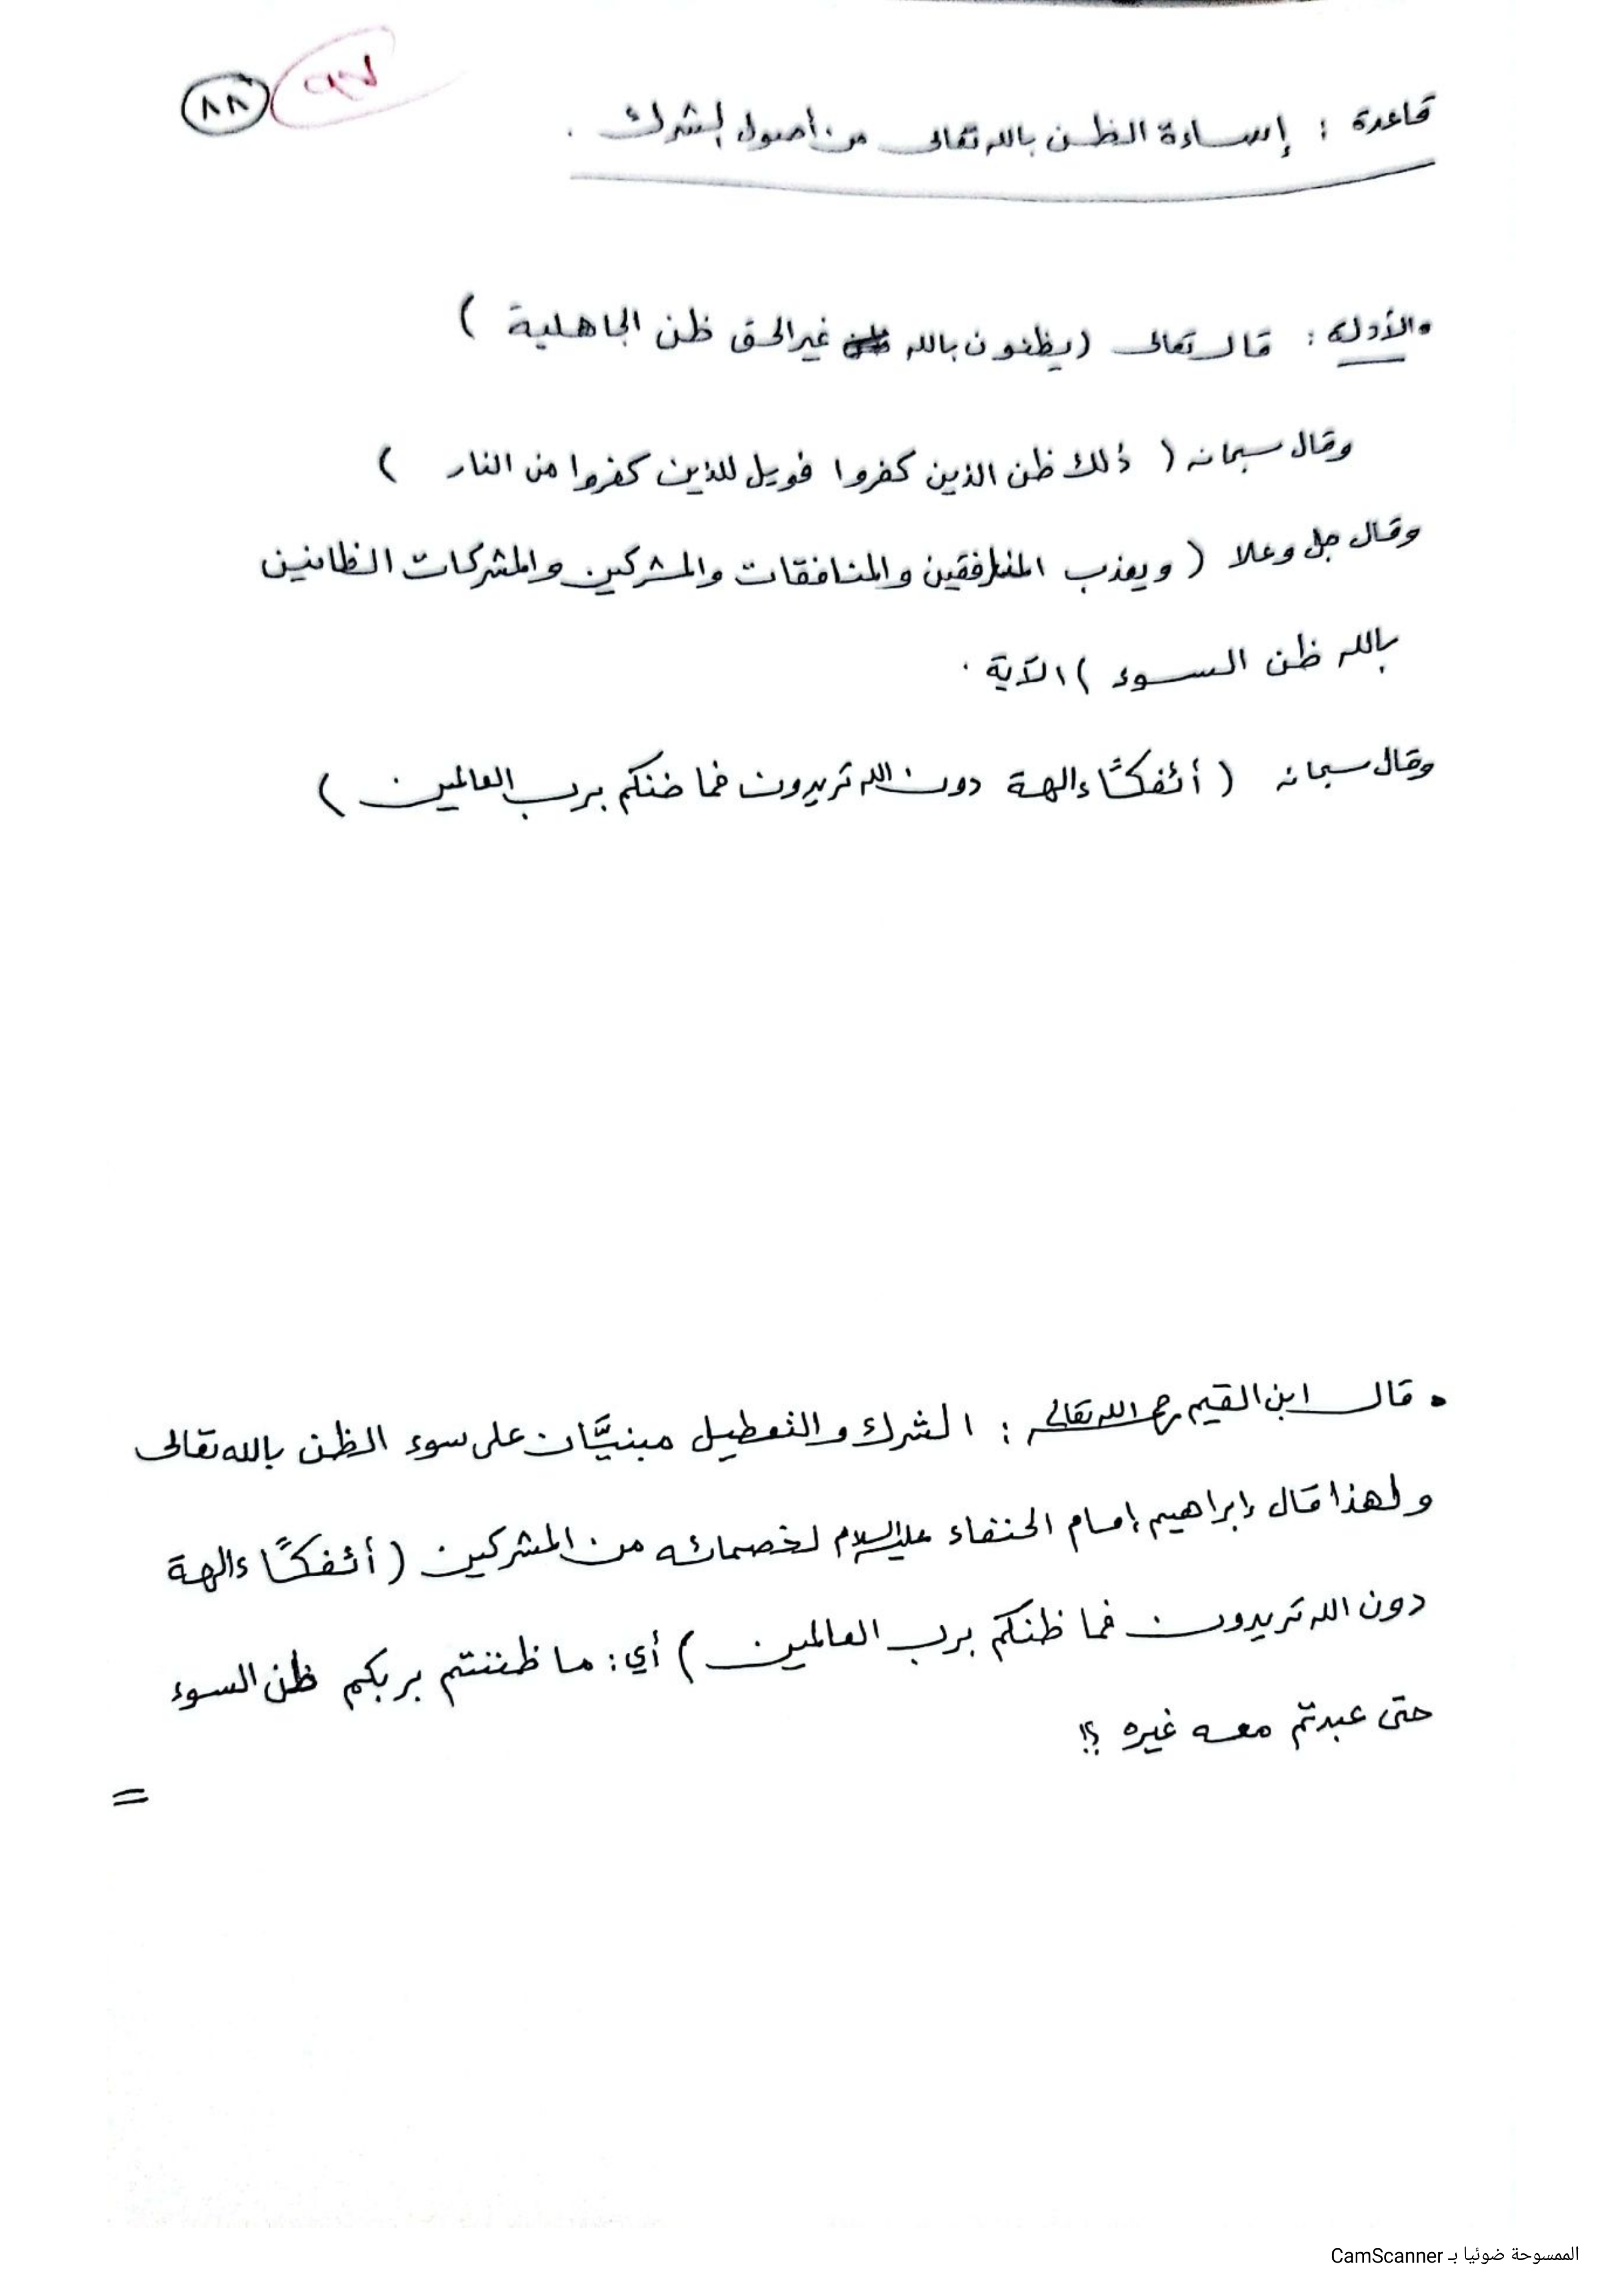 ٩٧
٨٨
قاعدة : إساءة الظن بالله تعالى من أصول الشرك .
• الأدلة : قال تعالى ( يظنون بالله غير الحق ظن الجاهلية )
وقال سبحانه ( ذلك ظن الذين كفروا فويل للذين كفروا من النار )
وقال جل وعلا ( ويعذب المنافقين والمنافقات والمشركين والمشركات الظانين
بالله ظن السوء ) الآية .
وقال سبحانه ( أئفكًا ءالهة دون الله تريدون فما ضنكم برب العالمين )
• قال ابن القيم رحمه الله تعالى : الشرك والتعطيل مبنيَّان على سوء الظن بالله تعالى
ولهذا قال إبراهيم إمام الحنفاء عليه السلام لخصمائه من المشركين ( أئفكًا ءالهة
دون الله تريدون فما ظنكم برب العالمين ) أي : ما ظننتم بربكم ظن السوء
حتى عبدتم معه غيره ؟!
=
الممسوحة ضوئيا بـ CamScanner